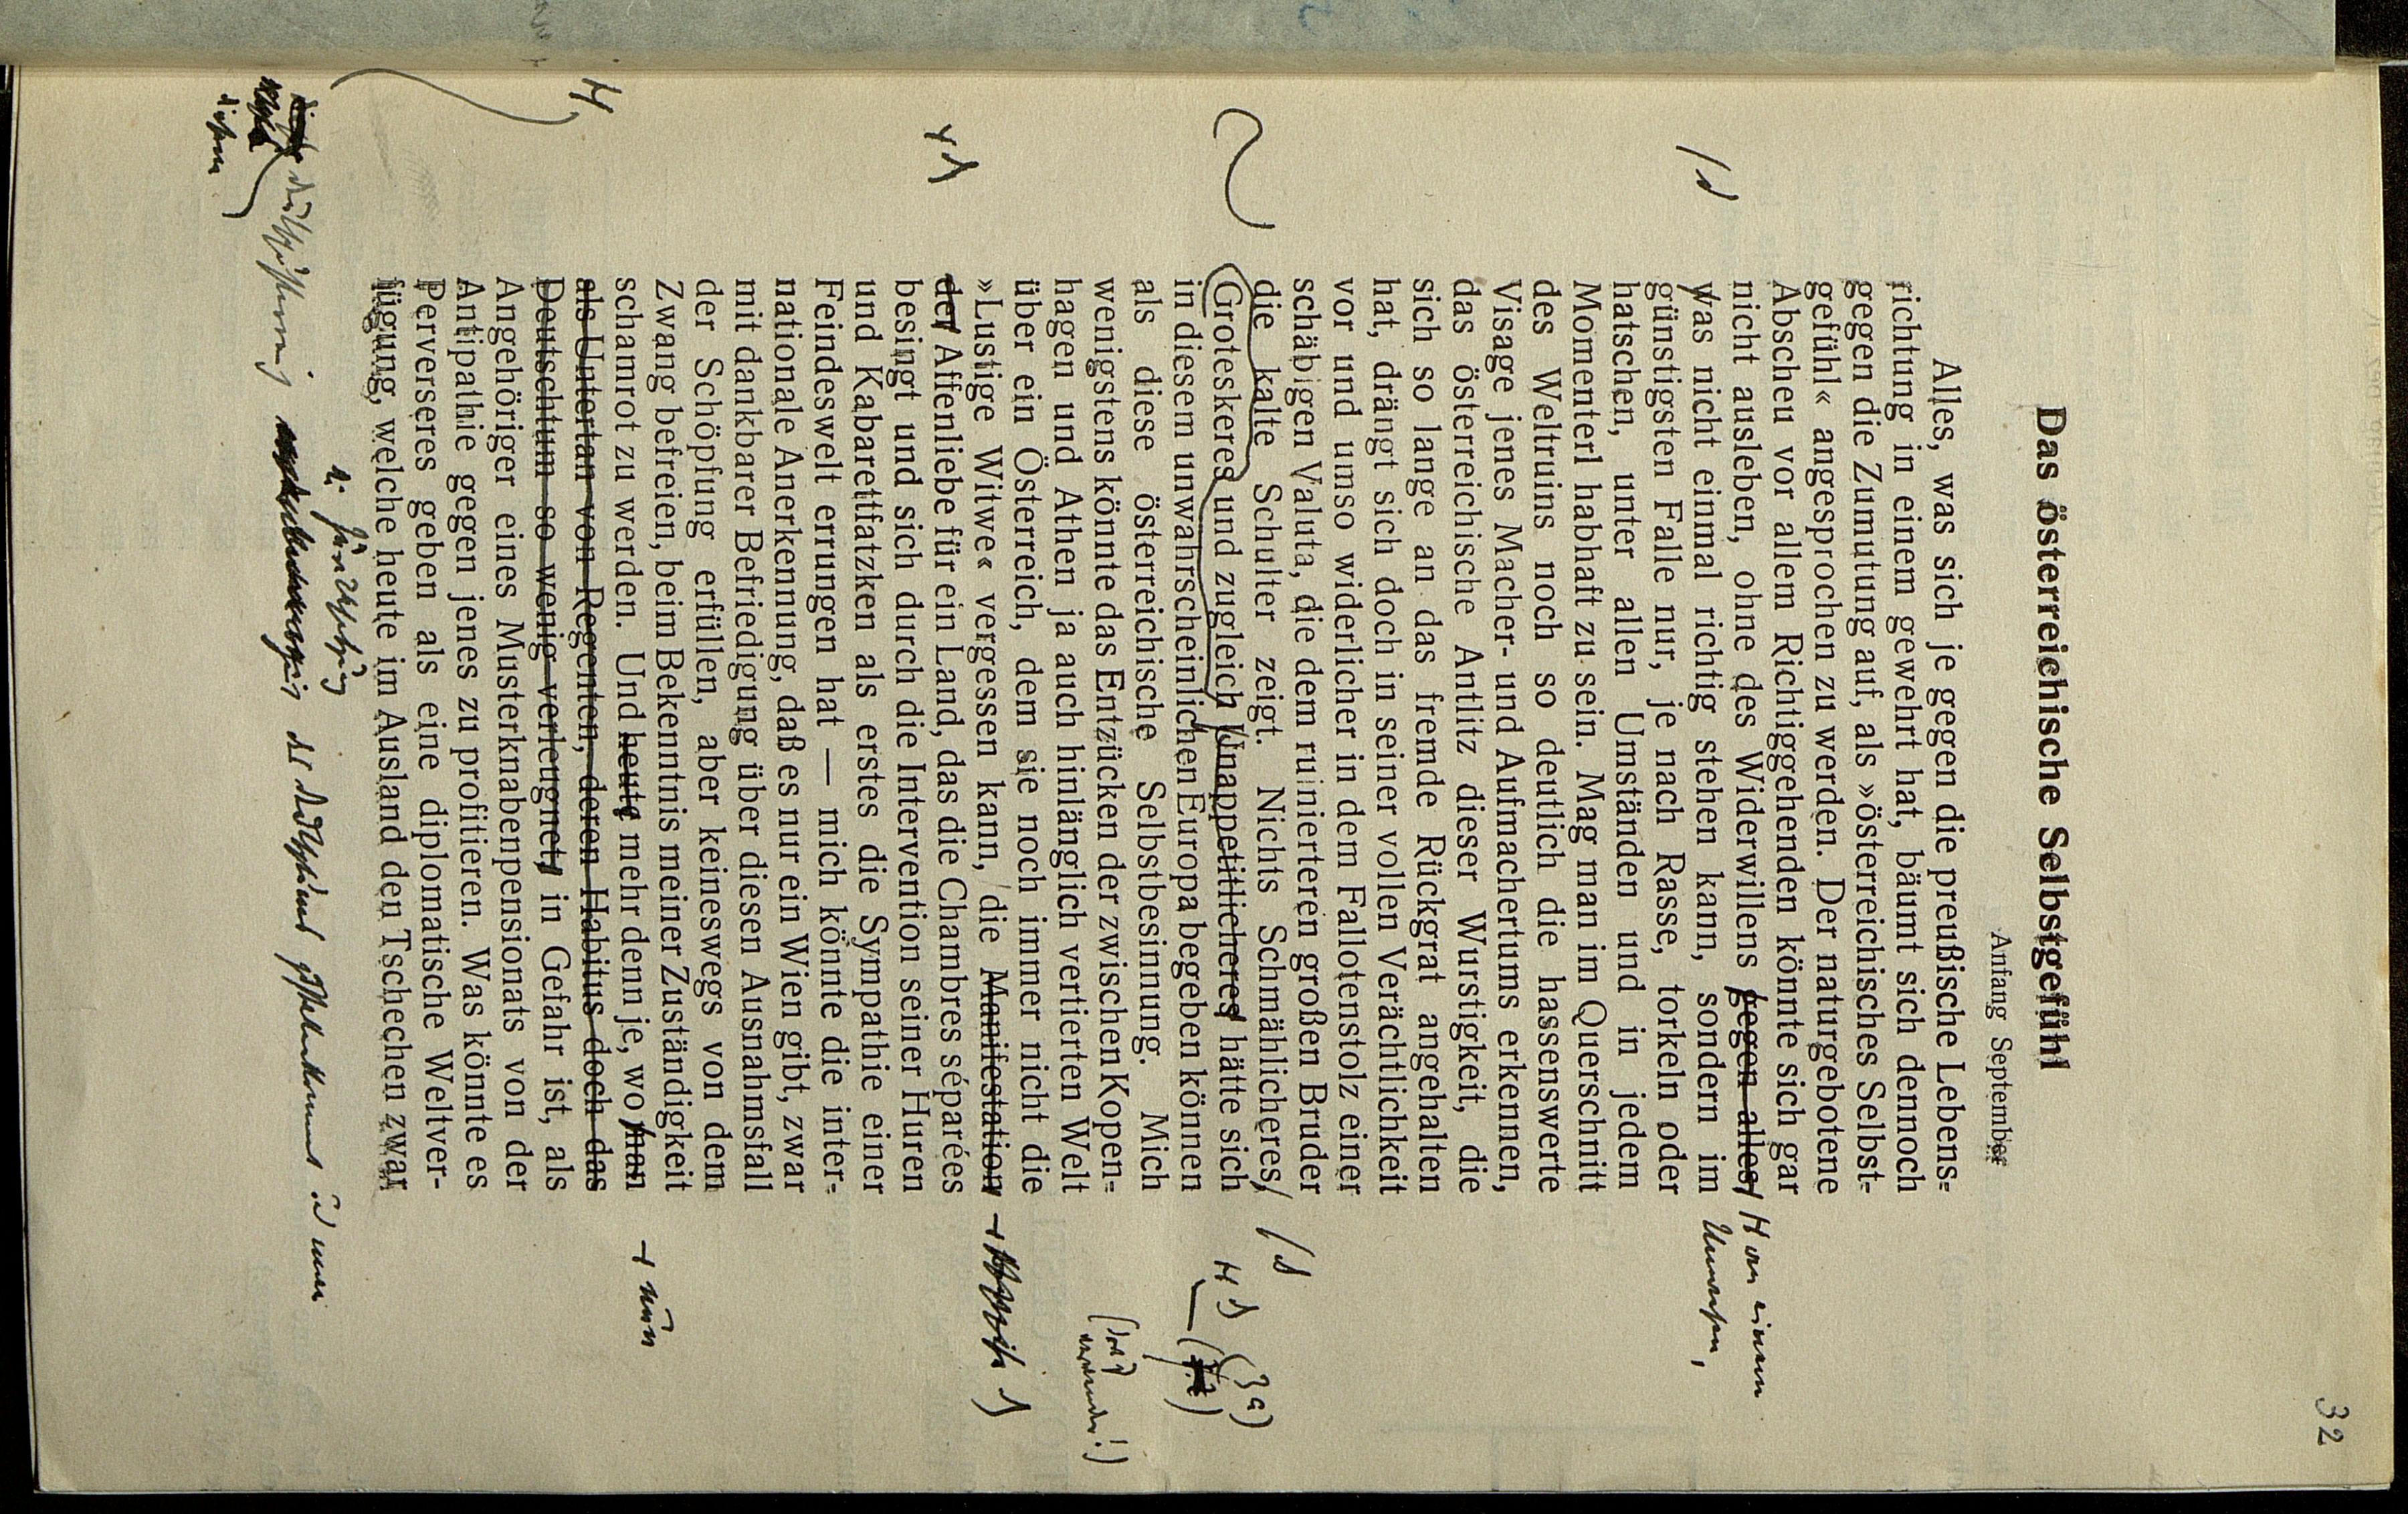 32
Das österreichische Selbstgefühl
Anfang September
Alles, was sich je gegen die preußische Lebens-
richtung in einem gewehrt hat, bäumt sich dennoch
gegen die Zumutung auf, als »österreichisches Selbst-
gefühl« angesprochen zu werden. Der naturgebotene
Abscheu vor allem Richtiggehenden könnte sich gar
nicht ausleben, ohne des Widerwillens gegen alles, von einem
was nicht einmal richtig stehen kann, sondern im
günstigsten Falle nur, je nach Rasse, torkeln oder
hatschen, unter allen Umständen und in jedem
Momenterl habhaft zu sein. Mag man im Querschnitt
des Weltruins noch so deutlich die hassenswerte
Visage jenes Macher- und Aufmachertums erkennen,
das österreichische Antlitz dieser Wurstigkeit, die
sich so lange an das fremde Rückgrat angehalten
hat, drängt sich doch in seiner vollen Verächtlichkeit
vor und umso widerlicher in dem Fallotenstolz einer
schäbigen Valuta, die dem ruinierteren großen Bruder
die kalte Schulter zeigt. Nichts Schmählicheres,
Groteskeres und zugleich Unappetitlicheres hätte sich
in diesem unwahrscheinlichen Europa begeben können
als diese österreichische Selbstbesinnung. Mich
wenigstens könnte das Entzücken der zwischen Kopen-
hagen und Athen ja auch hinlänglich vertierten Welt
über ein Österreich, dem sie noch immer nicht die
»Lustige Witwe« vergessen kann, die Manifestation
der Affenliebe für ein Land, das die Chambres séparées
besingt und sich durch die Intervention seiner Huren
und Kabarettfatzken als erstes die Sympathie einer
Feindeswelt errungen hat — mich könnte die inter-
nationale Anerkennung, daß es nur ein Wien gibt, zwar
mit dankbarer Befriedigung über diesen Ausnahmsfall
der Schöpfung erfüllen, aber keineswegs von dem
Zwang befreien, beim Bekenntnis meiner Zuständigkeit
schamrot zu werden. Und heute mehr denn je, wo man nun
als Untertan von Regenten, deren Habitus doch das
Deutschtum so wenig verleugnet, in Gefahr ist, als
Angehöriger eines Musterknabenpensionats von der
Antipathie gegen jenes zu profitieren. Was könnte es
Perverseres geben als eine diplomatische Weltver-
fügung, welche heute im Ausland den Tschechen zwar